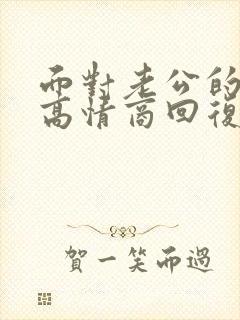 而對老公的
高情商回復
賀一笑而過